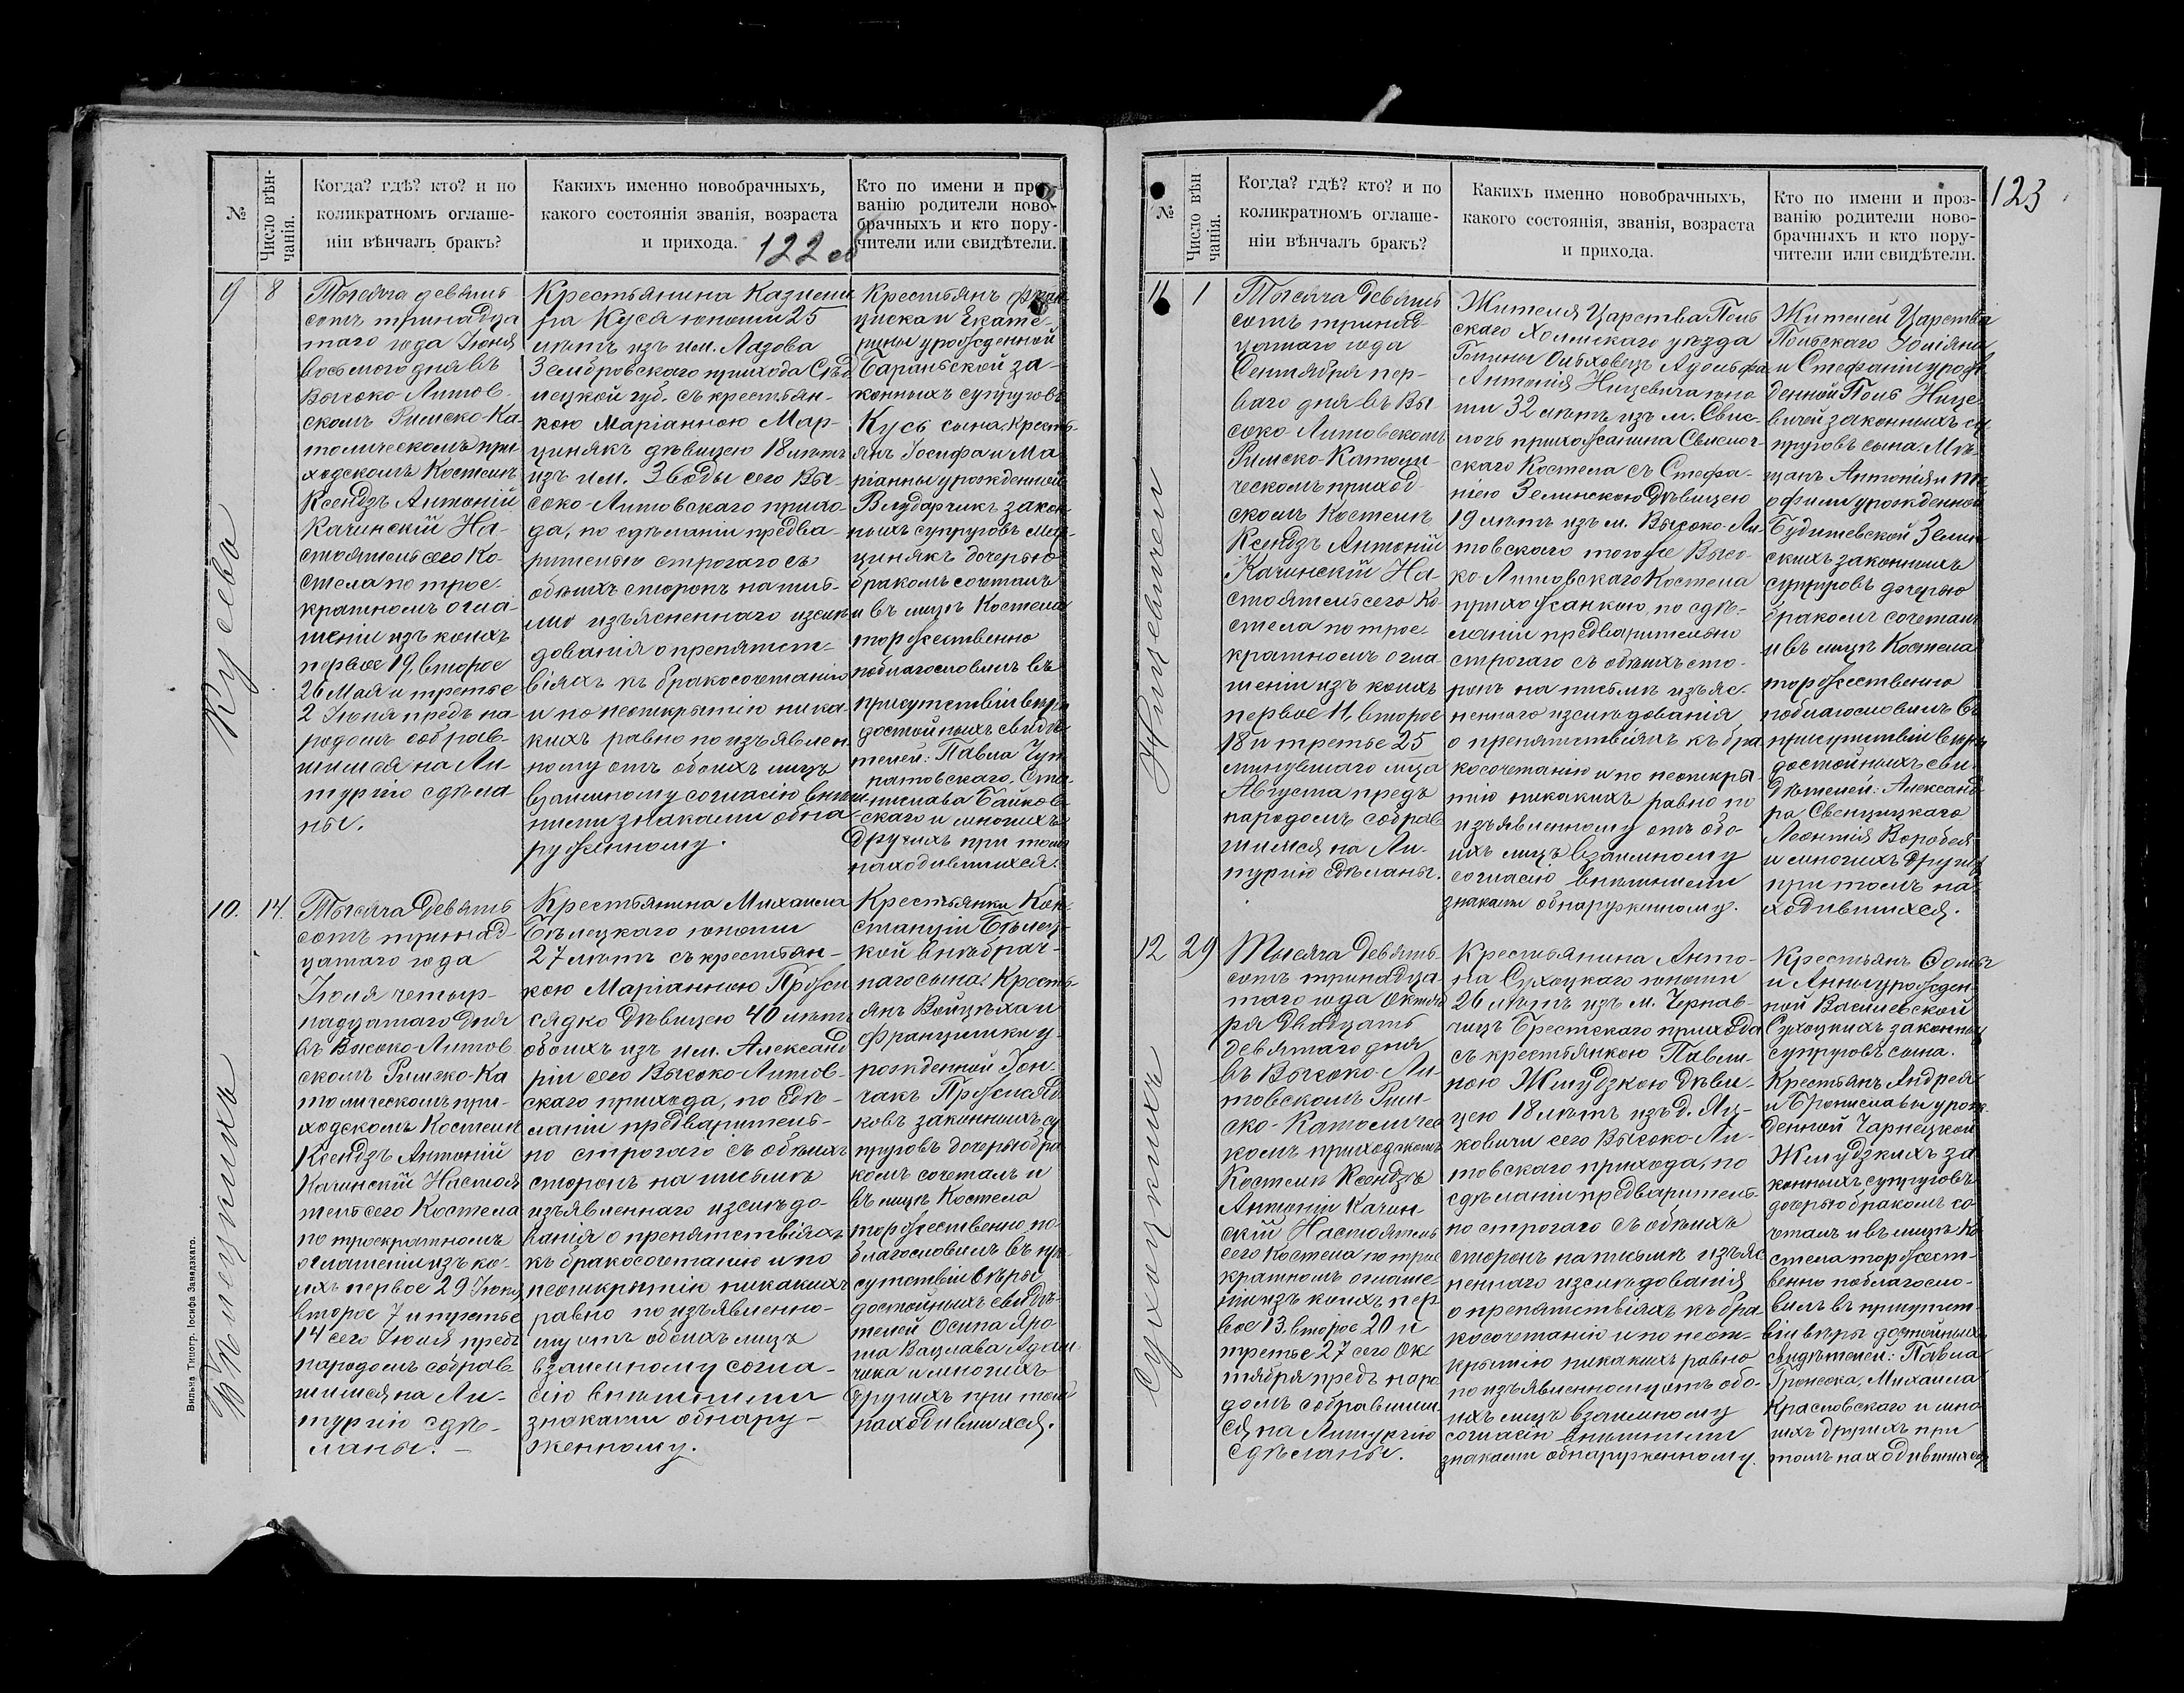 122 об
№
Число вѣн-
чанія.
Когда? гдѣ? кто? и по
коликратномъ оглаше-
ніи вѣнчалъ бракъ?
Какихъ именно новобрачныхъ,
какого состоянія званія, возраста
и прихода.
Кто по имени и про-
ванію родители ново-
брачныхъ и кто пору-
чители или свидѣтели.
Кусевъ
9
8
Тысяча девять
сотъ тринадца
таго года Іюня
восьмого дня въ
Высоко-Литов-
скомъ Римско-Ка-
толическомъ при
ходскомъ Костелѣ
Ксендзъ Антоній
Качинскій На-
стоятель сего Ко-
стела по трое-
кратномъ огла-
шеніи изъ коихъ
первое 19, второе
26 Мая и третье
2 Іюня предъ на-
родомъ собрав-
шимся на Ли-
тургію сдѣла-
ны.
Крестьянина Казими
ра Куся юноши 25
лѣтъ изъ им. Лазова
Зембровскаго прихода Сѣд
лецкой губ. съ крестьян-
кою Маріанною Мар-
цинякъ дѣвицею 18 лѣтъ
изъ им. Зводы сего Вы-
соко-Литовскаго прихо-
да, по сдѣланіи предва-
рительно строгаго съ
обѣихъ сторонъ на пись-
мѣ изъясненнаго изслѣ
дованія о препятст-
віяхъ къ бракосочетанію
и по неоткрытію ника-
кихъ равно по изъявлен
ному отъ обоихъ лицъ
взаимному согласію внѣш
ними знаками обна
руженному.
Крестьянъ Фран
циска и Екате-
рины урожденной
Баранской за-
конныхъ супруговъ
Кусь сына, Кресть-
янъ Іосифа и Ма
ріанны урожденной
Влударчикъ закон
ныхъ супруговъ Мар-
цинякъ дочерью
бракомъ сочеталъ
и въ лицѣ Костела
торжественно
поблагословилъ въ
присутствіи вѣры
достойныхъ свидѣ-
телей: Павла
Ста-
нислава Байков-
скаго и многихъ
другихъ при томъ
находившихся.
Бѣлецкихъ
10.
14.
Тысяча девять
сотъ тринад-
цатаго года
Іюля четыр-
надцатаго дня
въ Высоко-Литов
скомъ Римско-Ка
толическомъ при-
ходскомъ Костелѣ
Ксендзъ Антоній
Качинскій Настоя
тель сего Костела
по троекратномъ
оглашеніи изъ ко-
ихъ первое 29 Іюня
второе 7 и третье
14 сего Іюля предъ
народомъ собрав
шимся на Ли-
тургію сдѣ-
ланы. –
Крестьянина Михаила
Бѣлецкаго юноши
27 лѣтъ съ крестьян-
кою Маріанною Прожи
сядко дѣвицею 40 лѣтъ
обоихъ изъ им. Александ
ріи сего Высоко-Литов-
скаго прихода, по сдѣ-
ланіи предваритель-
но строгаго съ обѣихъ
сторонъ на письмѣ
изъявленнаго изслѣдо-
ванія о препятствіяхъ
къ бракосочетанію и по
неоткрытію никакихъ
равно по изъявленно-
му отъ обоихъ лицъ
взаимному согла-
сію внѣшними
знаками обнару-
женному.
Крестьянки Кон
станціи Бѣлец-
кой внѣбрач-
наго сына, Кресть-
янъ Войцѣха и
Францишки у-
рожденной Гон-
чакъ
ковъ законныхъ су
пруговъ дочерью бра
комъ сочеталъ и
въ лицѣ Костела
торжественно по-
благословилъ въ при
сутствіи вѣры
достойныхъ свидѣ-
телей Осипа Яро
ша Вацлава Адам
чика и многихъ
другихъ при томъ
находившихся.
Вильна Типогр. Іосифа Завадзкаго.
123
№
Число вѣн
чанія.
Когда? гдѣ? кто? и по
коликратномъ оглаше-
ніи вѣнчалъ бракъ?
Какихъ именно новобрачныхъ,
какого состоянія, званія, возраста
и прихода.
Кто по имени и проз-
ванію родители ново-
брачныхъ и кто пору-
чители или свидѣтели.
Ницевичей
11
1
Тысяча девять
сотъ тринад-
цатаго года
Сентября пер-
ваго дня въ Вы-
соко-Литовскомъ
Римско-Католи-
ческомъ приход-
скомъ Костелѣ
Ксендзъ Антоній
Качинскій На-
стоятель сего Ко-
стела по трое-
кратномъ огла-
шеніи изъ коихъ
первое 11, второе
18 и третье 25
минувшаго м-ца
Августа предъ
народомъ собрав
шимся на Ли-
тургію сдѣланы.
Жителя Царства Поль
скаго Холмскаго уѣзда
Гмины Ольховецъ Адольфа
Антонія Ницевича юно
ши 32 лѣтъ изъ м. Свис-
лочь прихожанина Свислоч-
скаго Костела съ Стефа-
ніею Зелинскою дѣвицею
19 лѣтъ изъ м. Высоко-Ли-
товскаго того же Высо-
ко-Литовскаго Костела
прихожанкою, по сдѣ-
ланіи предварительно
строгаго съ обѣихъ сто-
ронъ на письмѣ изъяс-
неннаго изслѣдованія
о препятствіяхъ къ бра
косочетанію и по неоткры
тію никакихъ равно по
изъявленному отъ обо-
ихъ лицъ взаимному
согласію внѣшними
знаками обнаруженному.
Жителей Царства
Польскаго Юліяна
и Стефаніи урож
денной Поль Нице
вичей законныхъ су
пруговъ сына, Мѣ-
щанъ Антонія и Те
офили урожденной
Будишевской Зелин
скихъ законныхъ
супруговъ дочерью
бракомъ сочеталъ
и въ лицѣ Костела
торжественно
поблагословилъ въ
присутствіи вѣры
достойныхъ сви-
дѣтелей: Александ
ра Свенцицкаго
Леонтія Воробея
и многихъ другихъ
при томъ на-
ходившихся.
Сухоцкихъ
12
29
Тысяча девять
сотъ тринадца
таго года Октяб
ря двадцать
девятаго дня
въ Высоко-Ли-
товскомъ Рим-
ско-Католичес
комъ приходскомъ
Костелѣ Ксендзъ
Антоній Качин-
скій Настоятель
сего Костела по трое
кратномъ оглаше-
ніи изъ коихъ пер
вое 13, второе 20 и
третье 27 сего Ок
тября предъ наро
домъ собравшим
ся на Литургію
сдѣланы.
Крестьянина Анто-
на Сухоцкаго юноши
26 лѣтъ изъ м. Чернав-
чицъ Брестскаго прихода
съ крестьянкою Павли-
ною Жмудзкою дѣви-
цею 18 лѣтъ изъ д. Яц-
ковичи сего Высоко-Ли-
товскаго прихода, по
сдѣланіи предваритель-
но строгаго съ обѣихъ
сторонъ на письмѣ изъяс
неннаго изслѣдованія
о препятствіяхъ къ бра
косочетанію и по неот-
крытію никакихъ равно
по изъявленному отъ обо-
ихъ лицъ взаимному
согласію внѣшними
знаками обнаруженному.
Крестьянъ Фомы
и Анны урожден-
ной Василевской
Сухоцкихъ законныхъ
супруговъ сына.
Крестьянъ Андрея
и Брониславы урож
денной Чарнецкой
Жмудзкихъ за
конныхъ супруговъ
дочерью бракомъ со-
четалъ и въ лицѣ Ко
стела торжест-
венно поблагосло-
вилъ въ присутст-
віи вѣры достойныхъ
свидѣтелей: Павла
Гронсека, Михаила
Красовскаго и мно
гихъ другихъ при
томъ находившихся